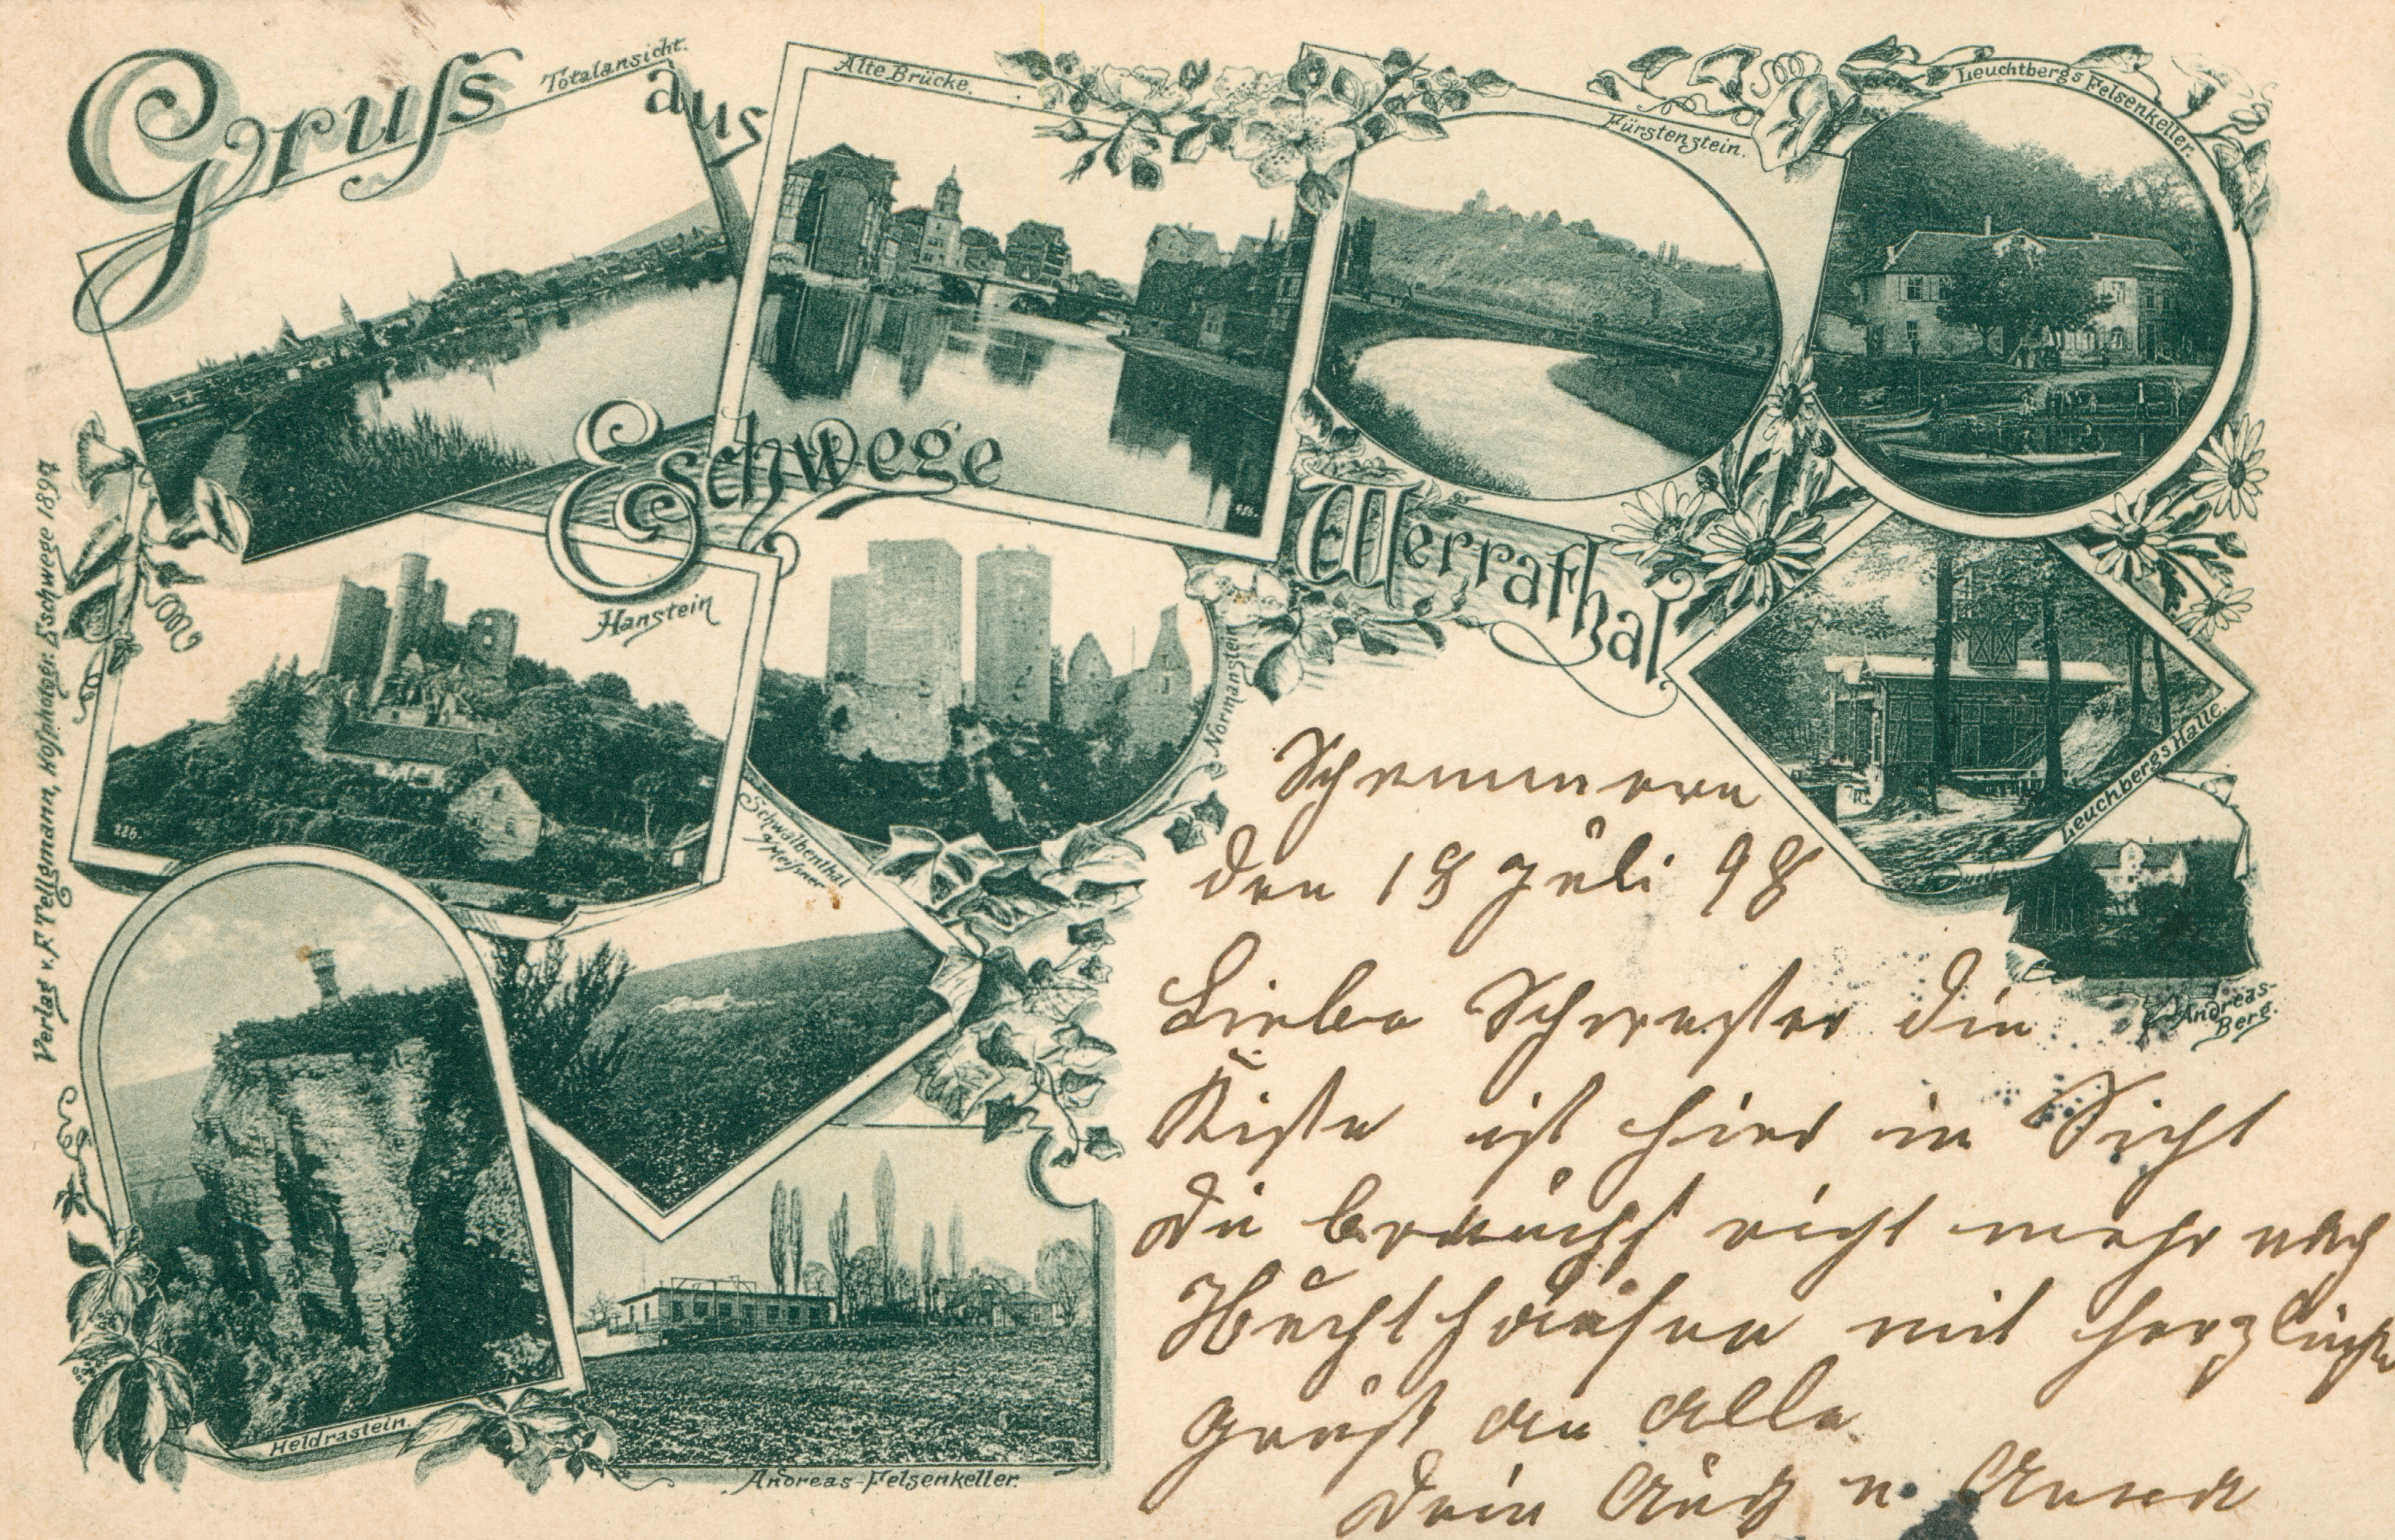 Gruss aus
Eschwege
Werrathal
Totalansicht.
Alte Brücke.
Fürstenstein.
Leuchtbergs Felsenkeller.
Hanstein
Normanstein
Leuchbergs Halle.
Schwalbenthal
a. Meißner
Andreas-
Berg.
Heldrastein.
Andreas-Felsenkeller.
456.
226.
Verlag v. F. Tellgmann, Hofphotogr. Eschwege 1897
Schemmern
den 18 Juli 98
Liebe Schwester die
Kiste ist hier in Sicht
du brauchst nicht mehr nach
mit herzlichen
Gruß an alle
Dein u.